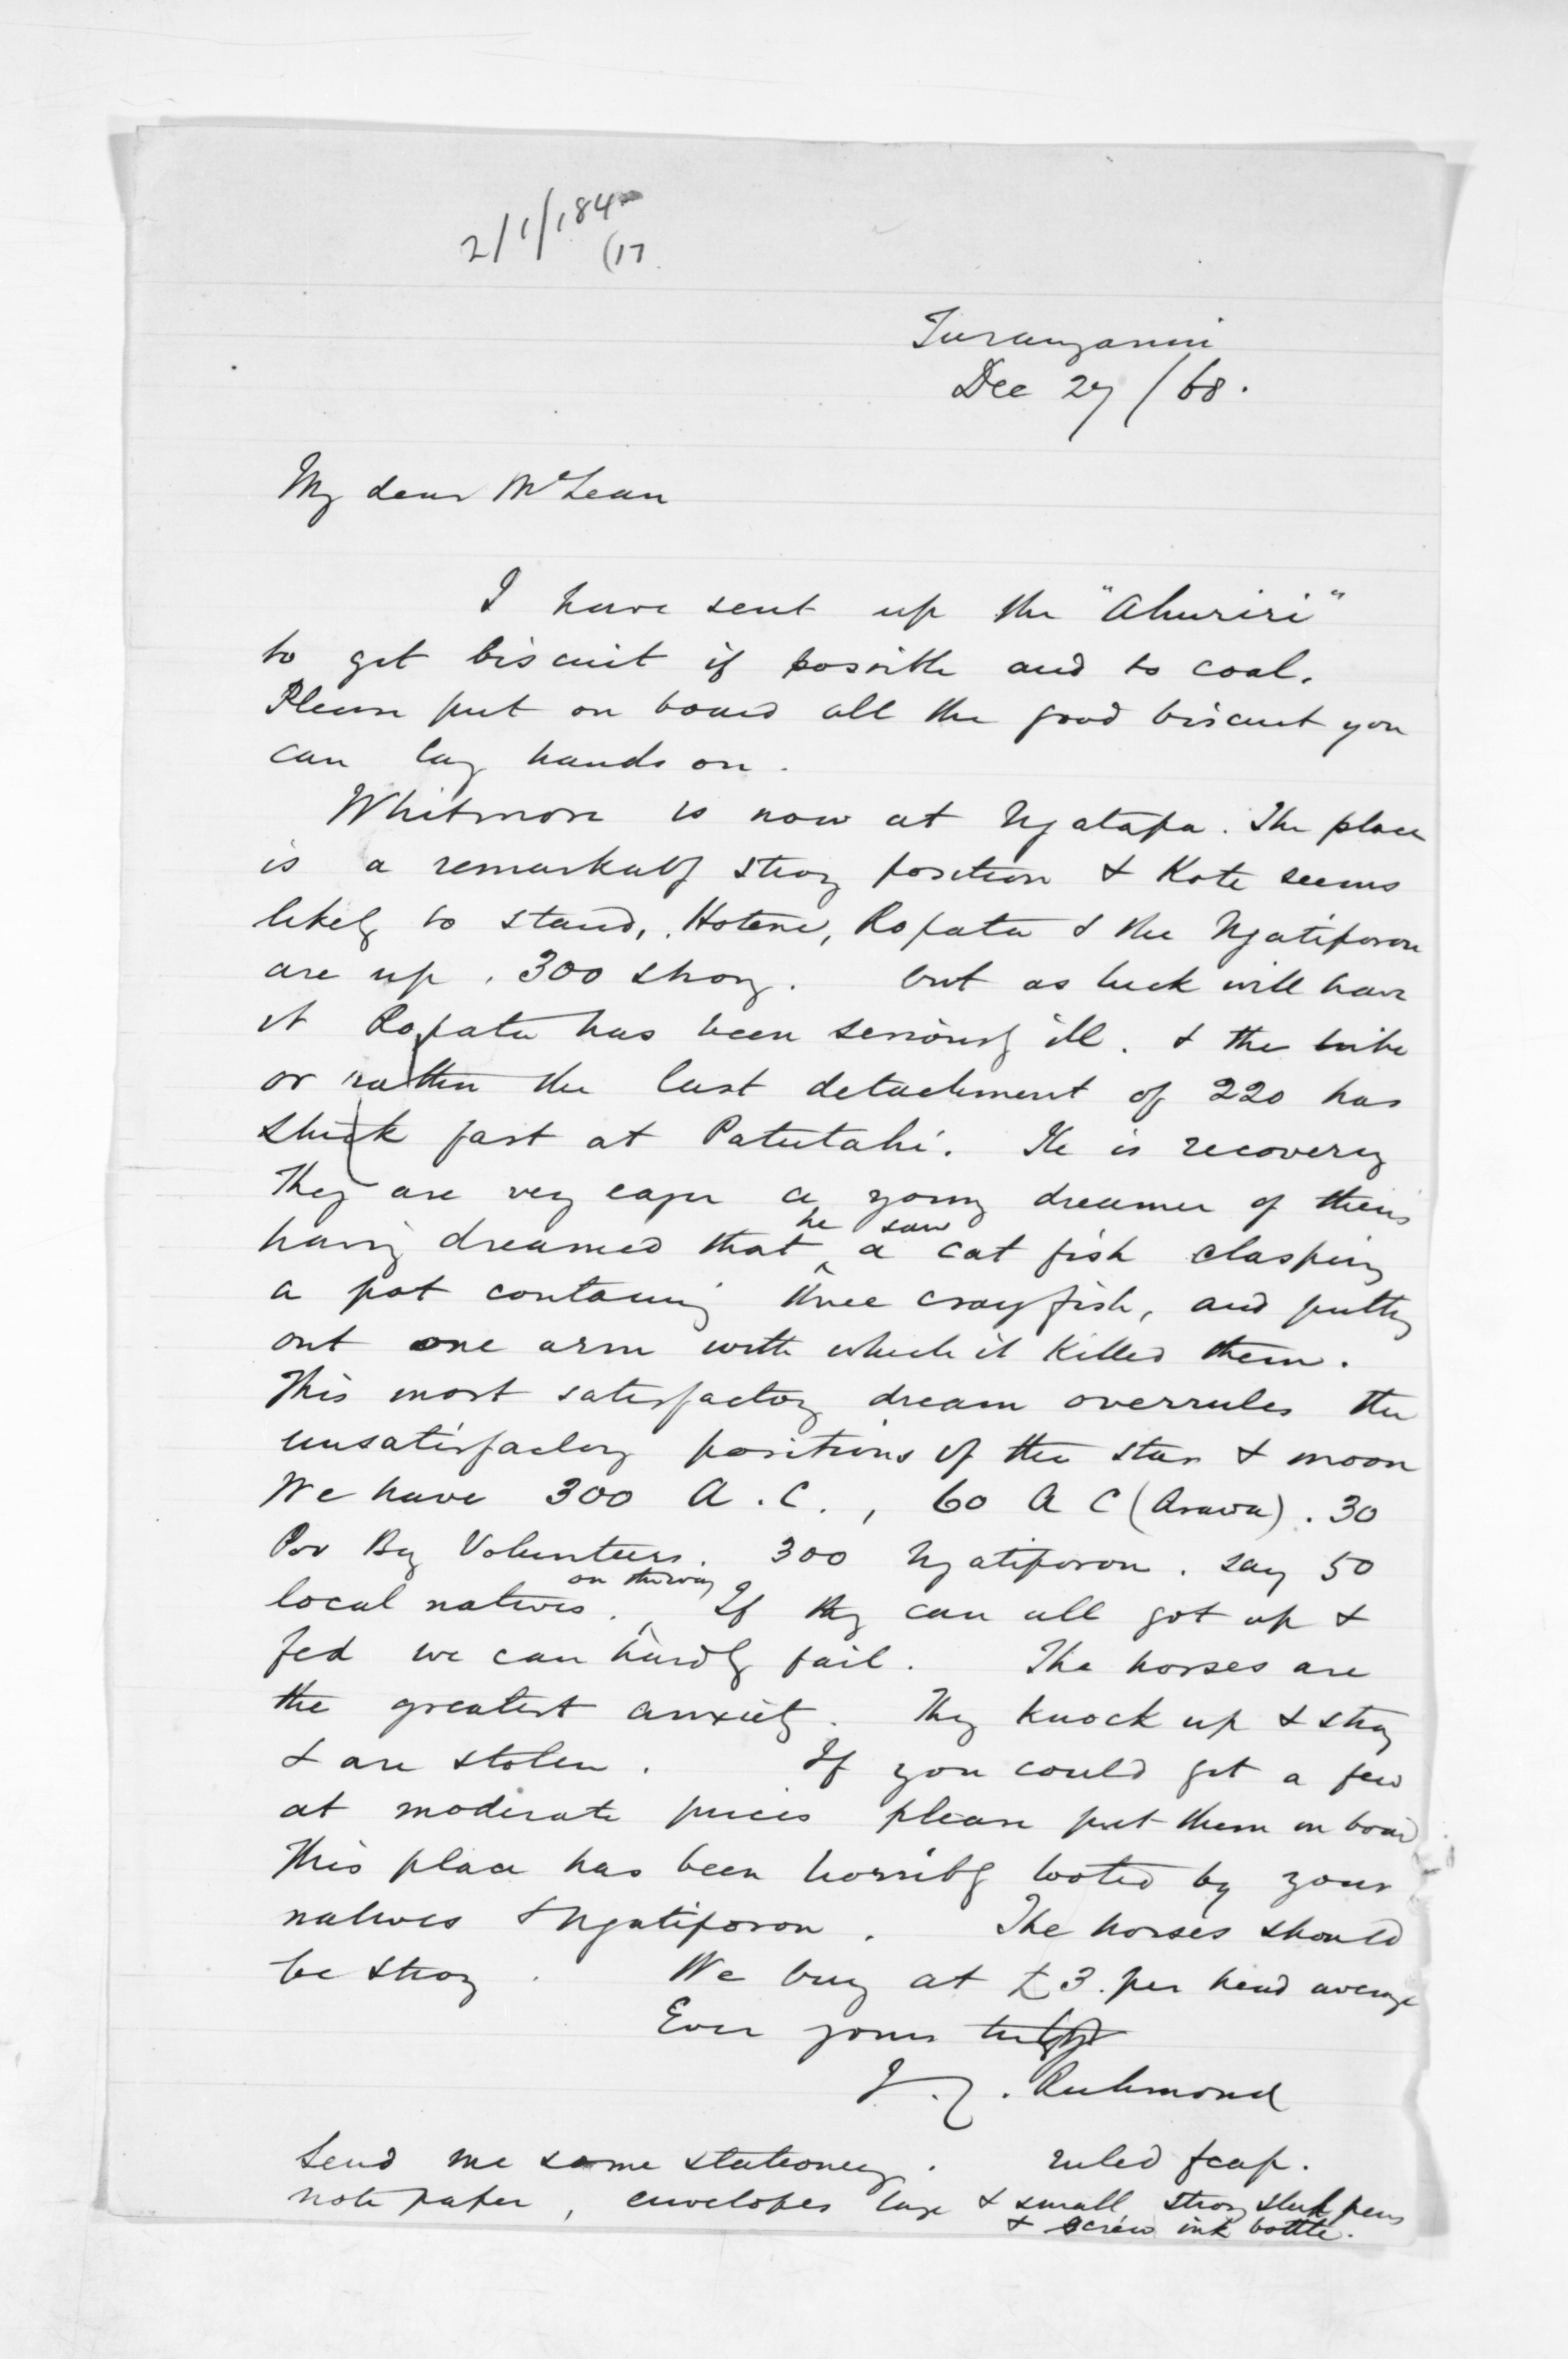 2/1/184
(17
Turanganui
Dec 27/68.
My dear McLean
I have sent up the "Ahuriri"
to get biscuit if possible and to coal.
Please put on board all the good biscuit you
can lay hands on.
Whitmore is now at Ngatapa. The place
is a remarkably strong position & Kote seems
likely to stand, Hotene, Ropata & the Ngatiporou
are up. 300 strong. but as luck will have
it Ropata has been seriously ill. & the tribe
or rather the last detachment of 220 has
stuck fast at Patutahi. He is recovering
They are very eager a young dreamer of theirs
having dreamed that he saw a cat fish clasping
a pot containing three crayfish, and putting
out one arm with which it killed them.
This most satisfactory dream overrules the
unsatisfactory positions of the star & moon
We have 300 A.C., 60 A C (Arawa). 30
Pov Bay Volunteers. 300 Ngatiporou. say 50
local natives. on the way If they can all got up &
fed we can hardly fail. The horses are
the greatest anxiety. They knock up & stray
& are stolen. If you could get a few
at moderate prices please put them on board
This place has been horribly looted by your
natives & Ngatiporou. The horses should
be strong. We buy at £3. per head average
Ever yours truly
J.C. Richmond
Send me some stationery. ruled fcap.
note paper, envelopes large & small strong steel pens
& screw ink bottle.